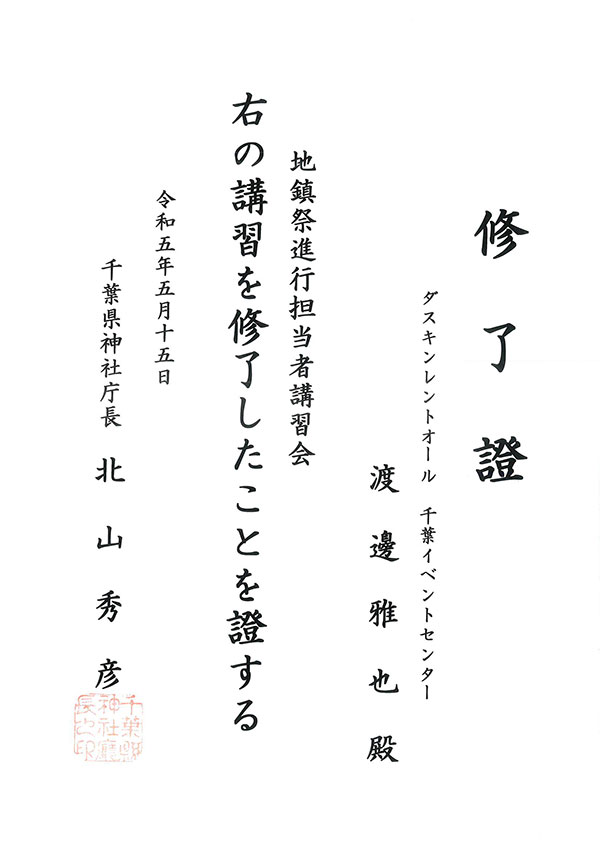 修了證
ダスキンレントオール　千葉イベントセンター
渡邊雅也殿
地鎮祭進行担当者講習会
右の講習を修了したことを證する
令和五年五月十五日
千葉県神社庁長　北山秀彦
千葉縣
神社廳
長之印